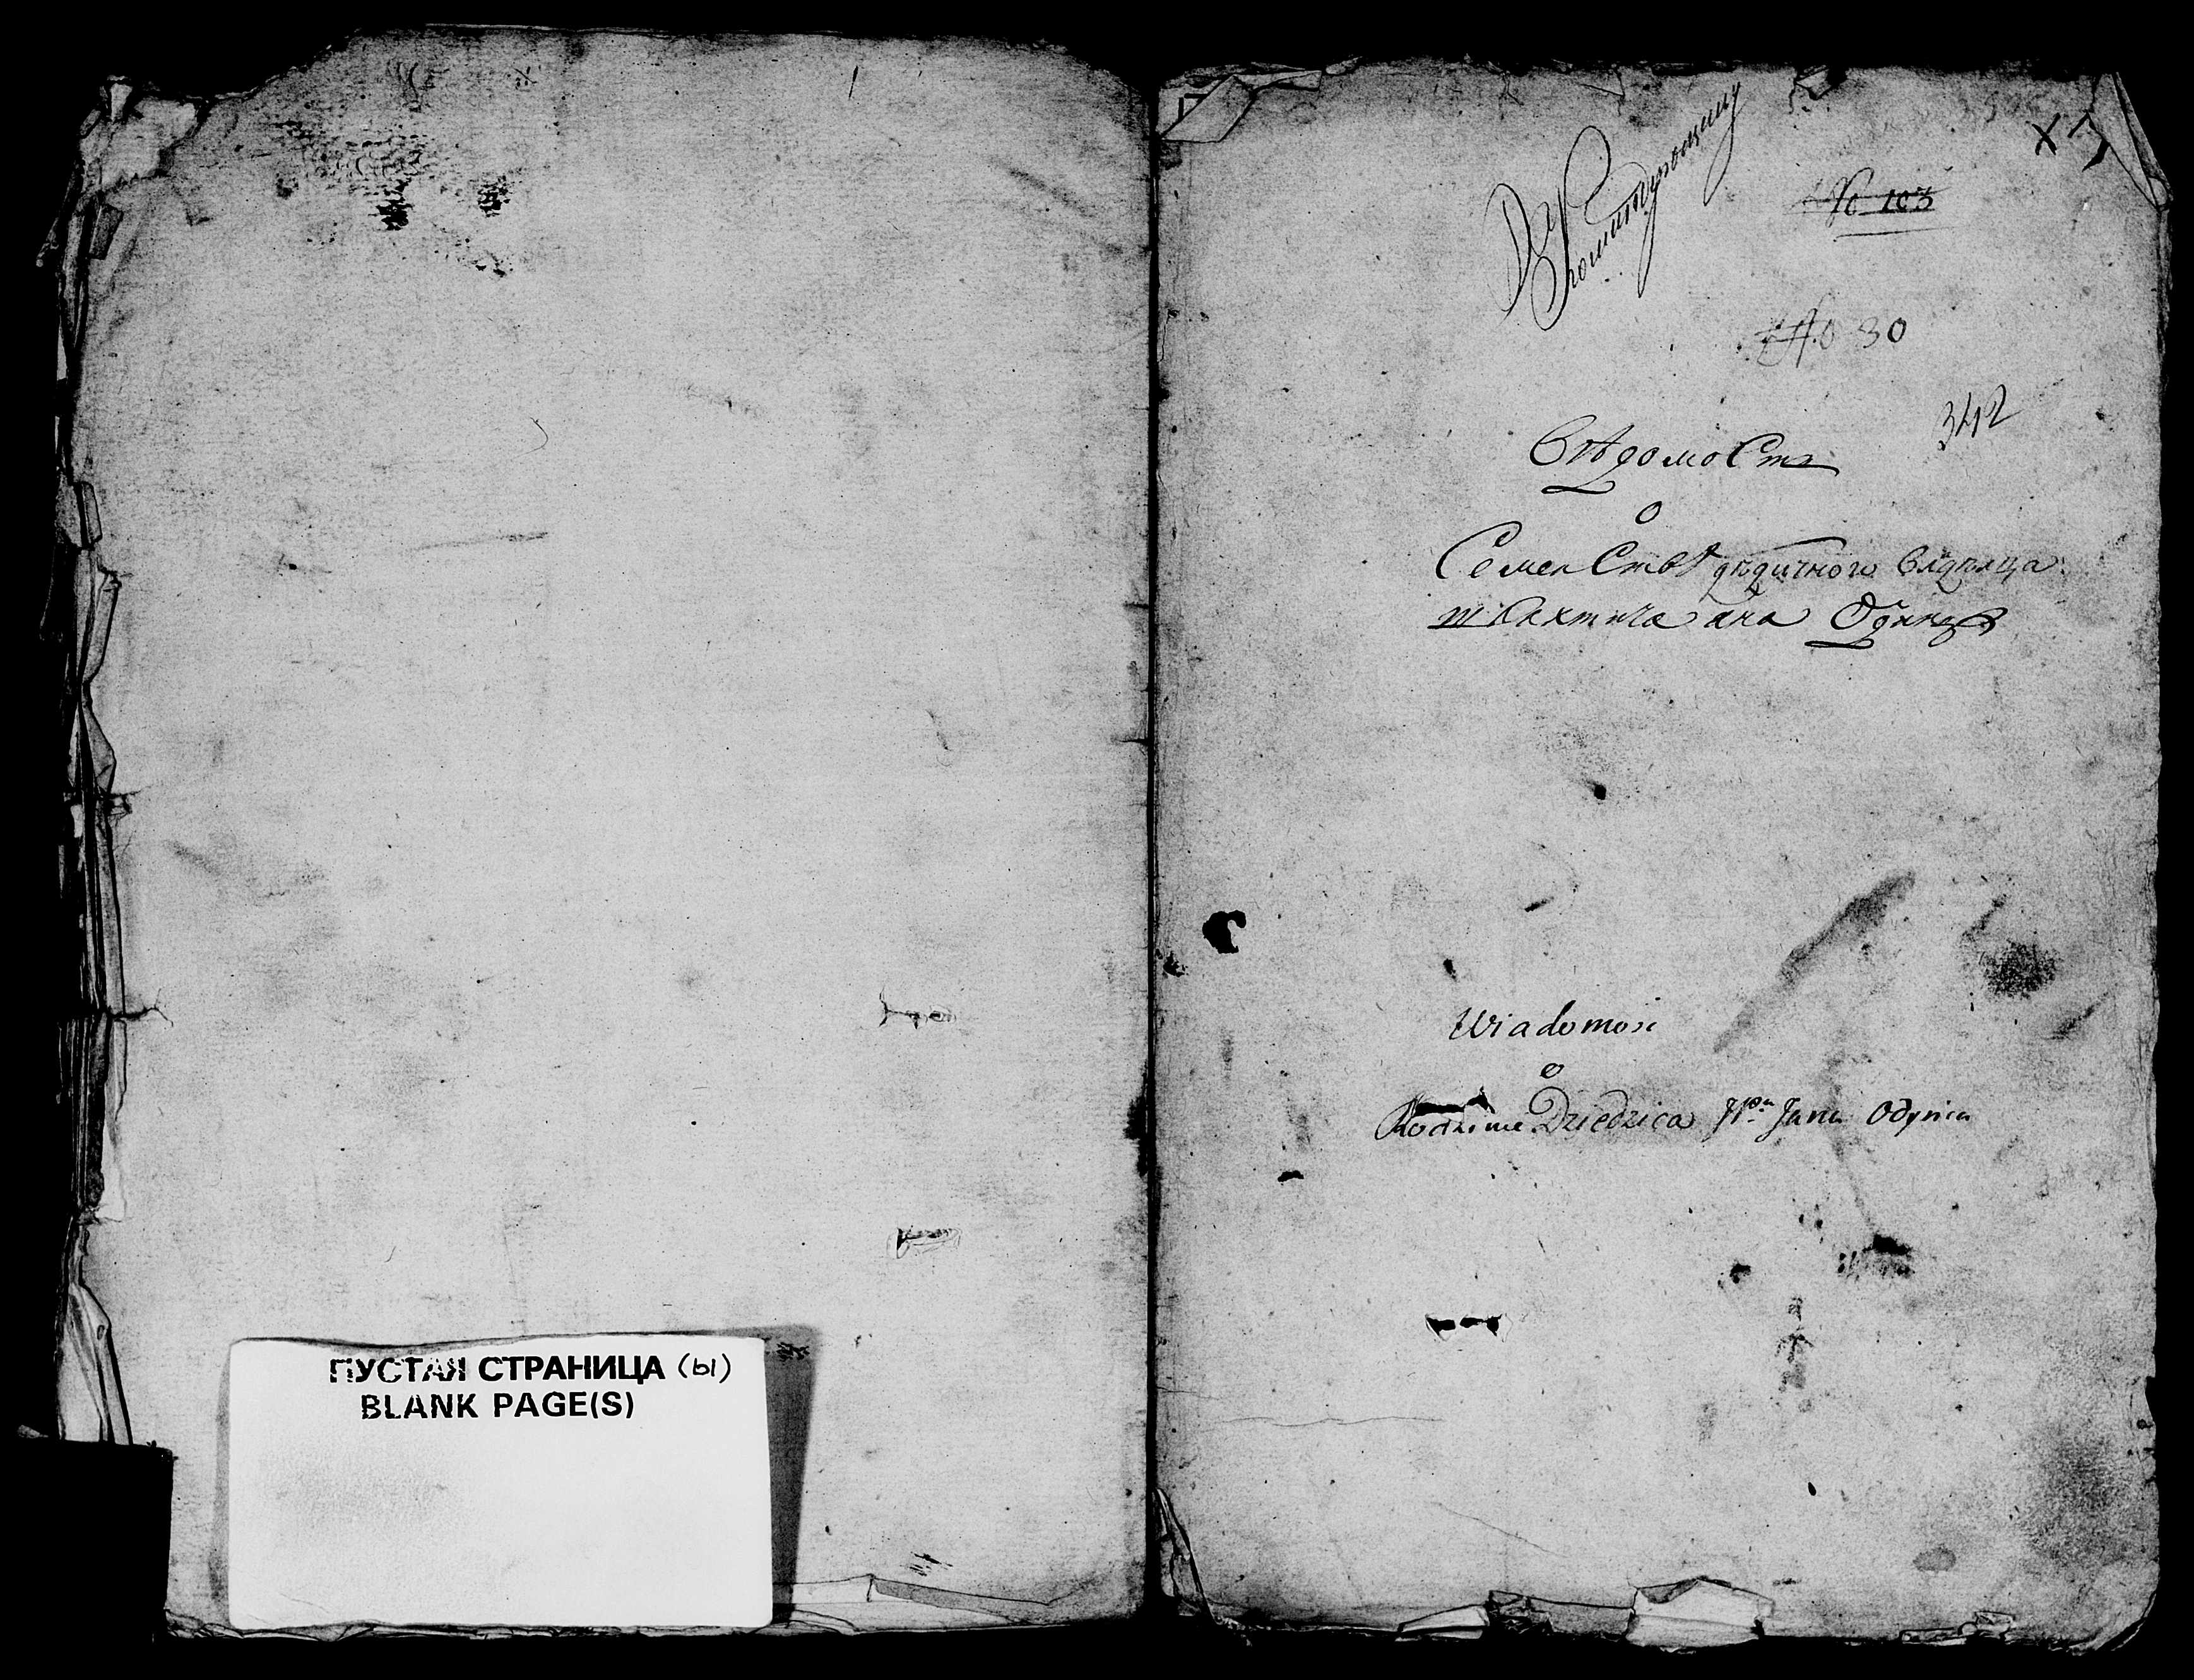 ПУСТАЯ СТРАНИЦА (ы)
BLANK PAGE(S)
№ 103
№ 30
342
Вѣдомость
о
Семействѣ дѣдичного владѣльца
шляхтича Яна Одинца
Wiadomosc
o
Rodzinie Dziedzica Jana Odynca